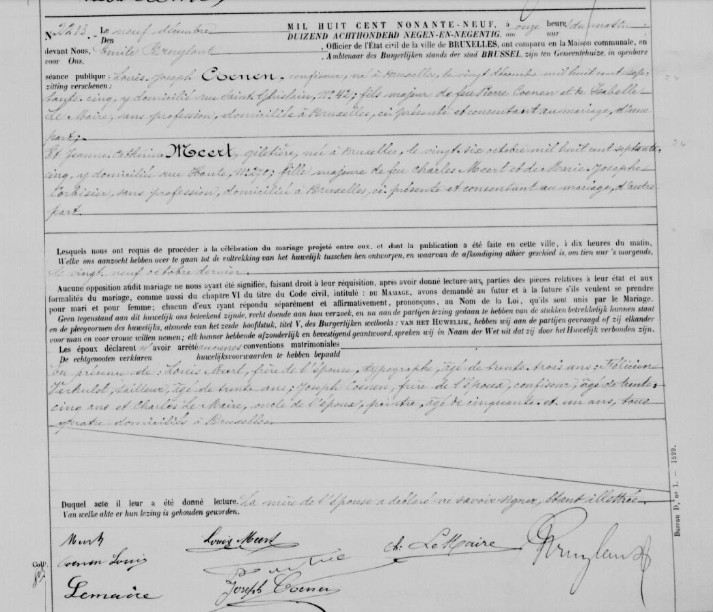 N. 2213. Le neuf décembre MIL HUIT CENT NONANTE-NEUF, à onze heures du matin
Den DUIZEND ACHTHONDERD NEGEN-EN-NEGENTIG, om uur
devant Nous, Emile Bruylant, Officier de l'État civil de la ville de BRUXELLES, ont comparu en la Maison communale, en
voor Ons. Ambtenaar des Burgerlijken stands der stad BRUSSEL, zijn ten Gemeentehuize, in openbare
séance publique: Louis Joseph Coenen, confiseur, né à Bruxelles, le vingt décembre mil huit cent sep-
zitting verschenen:
tante cinq, y domicilié rue Saint Ghislain, N° 42; fils majeur de feu Pierre Coenen et de Isabelle
Le Maire, sans profession, domiciliée à Bruxelles, ici présente et consentant au mariage, d'une
part;
Et Jeanne Catherine Meert, giletière, née à Bruxelles, le vingt six octobre mil huit cent septante
cinq, y domiciliée rue Haute, N° 270; fille majeure de feu Charles Meert et de Marie Josèphe
Corbisier, sans profession, domiciliée à Bruxelles, ici présente et consentant au mariage, d'autre
part.
Lesquels nous ont requis de procéder à la célébration du mariage projeté entre eux, et dont la publication a été faite en cette ville, à dix heures du matin,
Welke ons aanzocht hebben over te gaan tot de voltrekking van het huwelijk tusschen hen ontworpen, en waarvan de afkondiging alhier geschied is, om tien uur 's morgends,
le vingt neuf octobre dernier.
Aucune opposition audit mariage ne nous ayant été signifiée, faisant droit à leur réquisition, après avoir donné lecture aux parties des pièces relatives à leur état et aux
formalités du mariage, comme aussi du chapitre VI du titre du Code civil, intitulé : DU MARIAGE, avons demandé au futur et à la future s'ils veulent se prendre
pour mari et pour femme; chacun d'eux ayant répondu séparément et affirmativement, prononçons, au Nom de la Loi, qu'ils sont unis par le Mariage.
Geen tegenstand aan dit huwelijk ons beteekend zijnde, recht doende aan hun verzoek, en na aan partijen lezing gedaan te hebben van de stukken betrekkelijk hunnen staat
en de pleegvormen des huwelijks, alsmede van het zesde hoofdstuk, titel V, des Burgerlijken wetboeks : VAN HET HUWELIJK, hebben wij aan de partijen gevraagd of zij elkander
voor man en voor vrouw willen nemen; elk hunner hebbende afzonderling en bevestigend geantwoord, spreken wij in Naam der Wet uit dat zij door het Huwelijk verbonden zijn.
Les époux déclarent n'avoir arrêté aucunes conventions matrimoniales
De echtgenooten verklaren huwelijksvoorwaarden te hebben bepaald
En présence de: Louis Meert, frère de l'épouse, typographe, âgé de trente trois ans; Félicien
tailleur, âgé de trente ans; Joseph Coenen, frère de l'époux, confiseur, âgé de trente
cinq ans et Charles Le Maire, oncle de l'époux, peintre, âgé de cinquante et un ans, tous
quatre domiciliés à Bruxelles.
Duquel acte il leur a été donné lecture. La mère de l'épouse a déclaré ne savoir signer, étant illettrée
Van welke akte er hun lezing is gehouden geworden.
Meert Louis Meert Ch. Le Maire Bruylant
Coenen Louis
Lemaire Joseph Coenen
Bureau D, n° 1. — 1899.